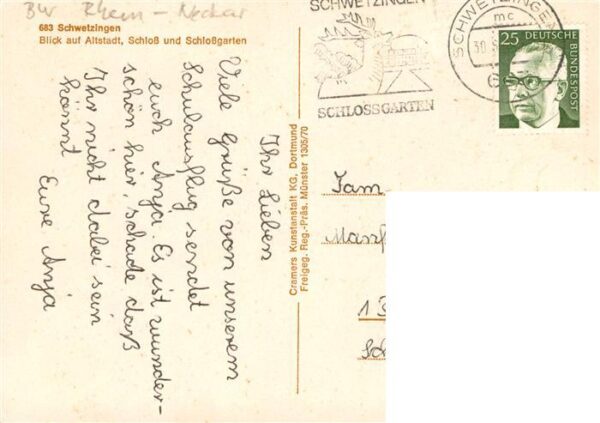 BW Rhein - Neckar
683 Schwetzingen
Blick auf Altstadt, Schloß und Schloßgarten
Ihr Lieben
Viele Grüße von unserem
Schulausflug sendet
euch Anja. Es ist wunder-
schön hier, schade daß
Ihr nicht dabei sein
könnt
Eure Anja
Cramers Kunstanstalt KG, Dortmund
Freigeg. Reg.-Präs. Münster 1305/70
SCHWETZINGEN
SCHLOSSGARTEN
SCHWETZINGEN
mc
25 DEUTSCHE
BUNDESPOST
Fam
13